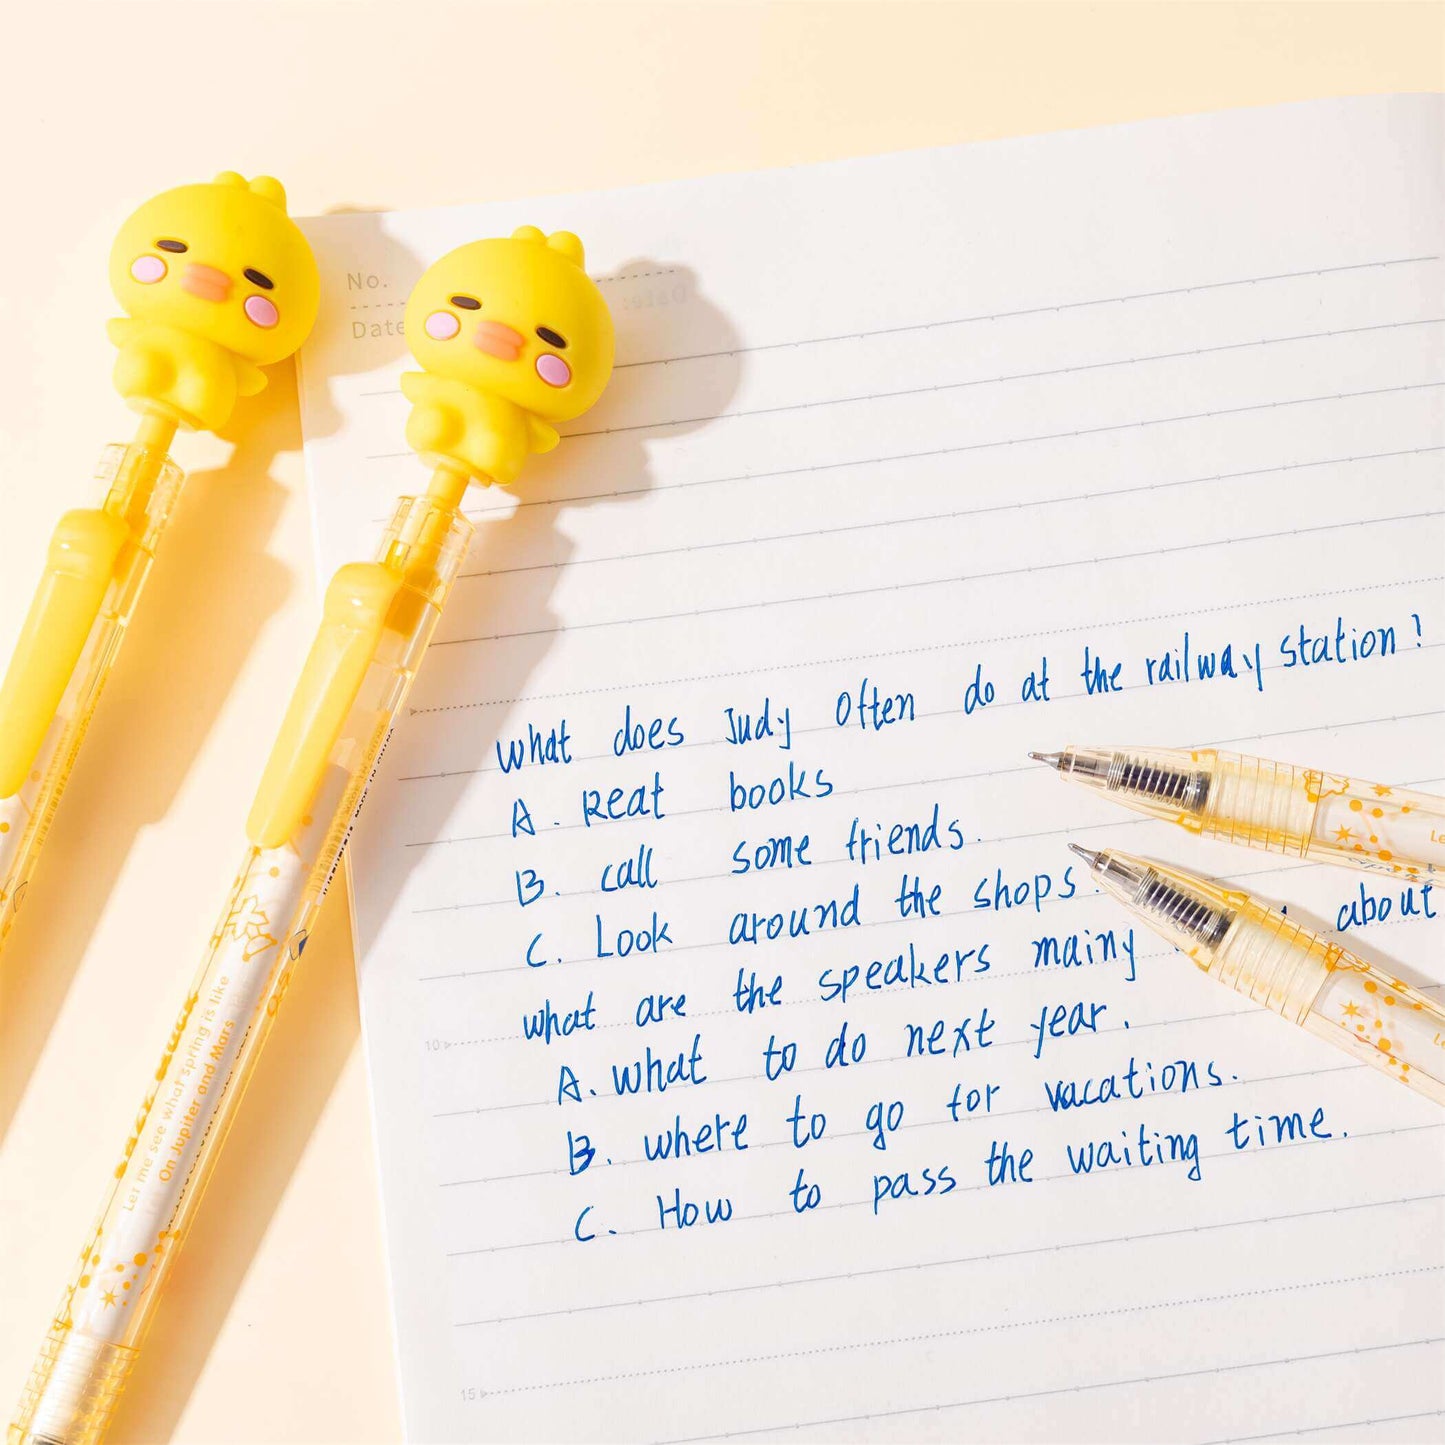 No.
Date
what does Judy Often do at the railway station?
A. Reat books
B. call some friends.
C. Look around the shops.
what are the speakers mainy about
10
A. What to do next year.
B. where to go for vacations.
C. How to pass the waiting time.
15
Let me see what spring is like
On Jupiter and Mars
MADE IN CHINA